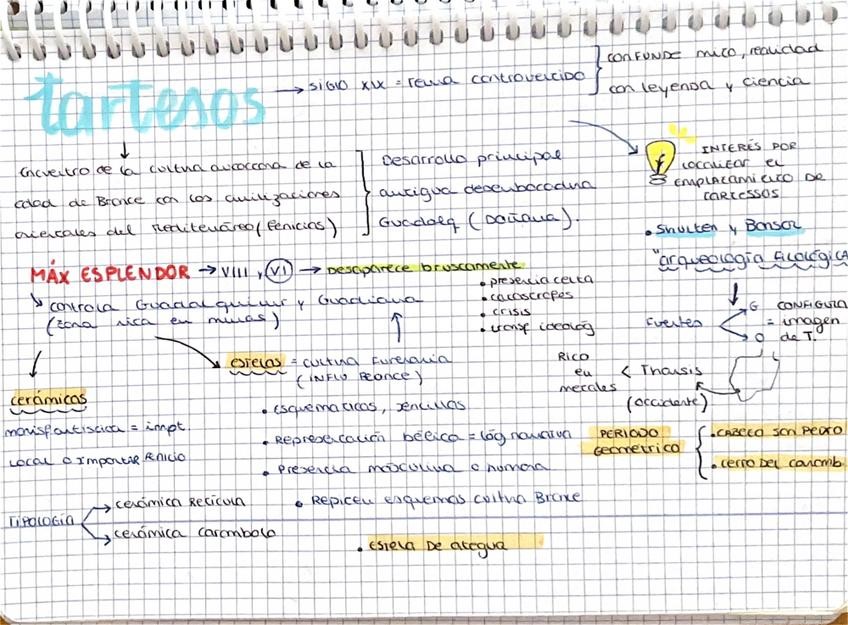 tartesos
→ siglo XIX = tema controvertido
confunde mito, realidad
con leyenda y ciencia
Encuentro de la cultura autoctona de la
edad de Bronce con las civilizaciones
orientales del Mediterráneo (Fenicios)
Desarrollo principal
antigua desembocadura
Guadalq (Doñana).
INTERÉS POR
LOCALIZAR EL
EMPLAZAMIENTO DE
TARTESSOS
• Shulten y Bonsor
"arqueología filológica
Fuentes
G
O
CONFIGURA
= imagen
de T.
MÁX ESPLENDOR → VIII, VI → Desaparece bruscamente
• presencia celta
• catastrofes
• crisis
• transf ideológ
controla Guadalquivir y Guadiana
(zona rica en minas)
Rico
en
metales
< Tharsis
(occidente)
estelas = cultura funeraria
(INFLU BRONCE)
• esquematicas, sencillas
• Representación bélica = lóg narrativa
• Presencia masculina o humana
• Repiten esquemas cultura Bronce
• Estela De ategua
cerámicas
local o importar fenicio
TIPOLOGÍA
cerámica Retícula
cerámica carambolo
PERIODO
Geometrico
• cabezo San Pedro
• cerro del caramb.